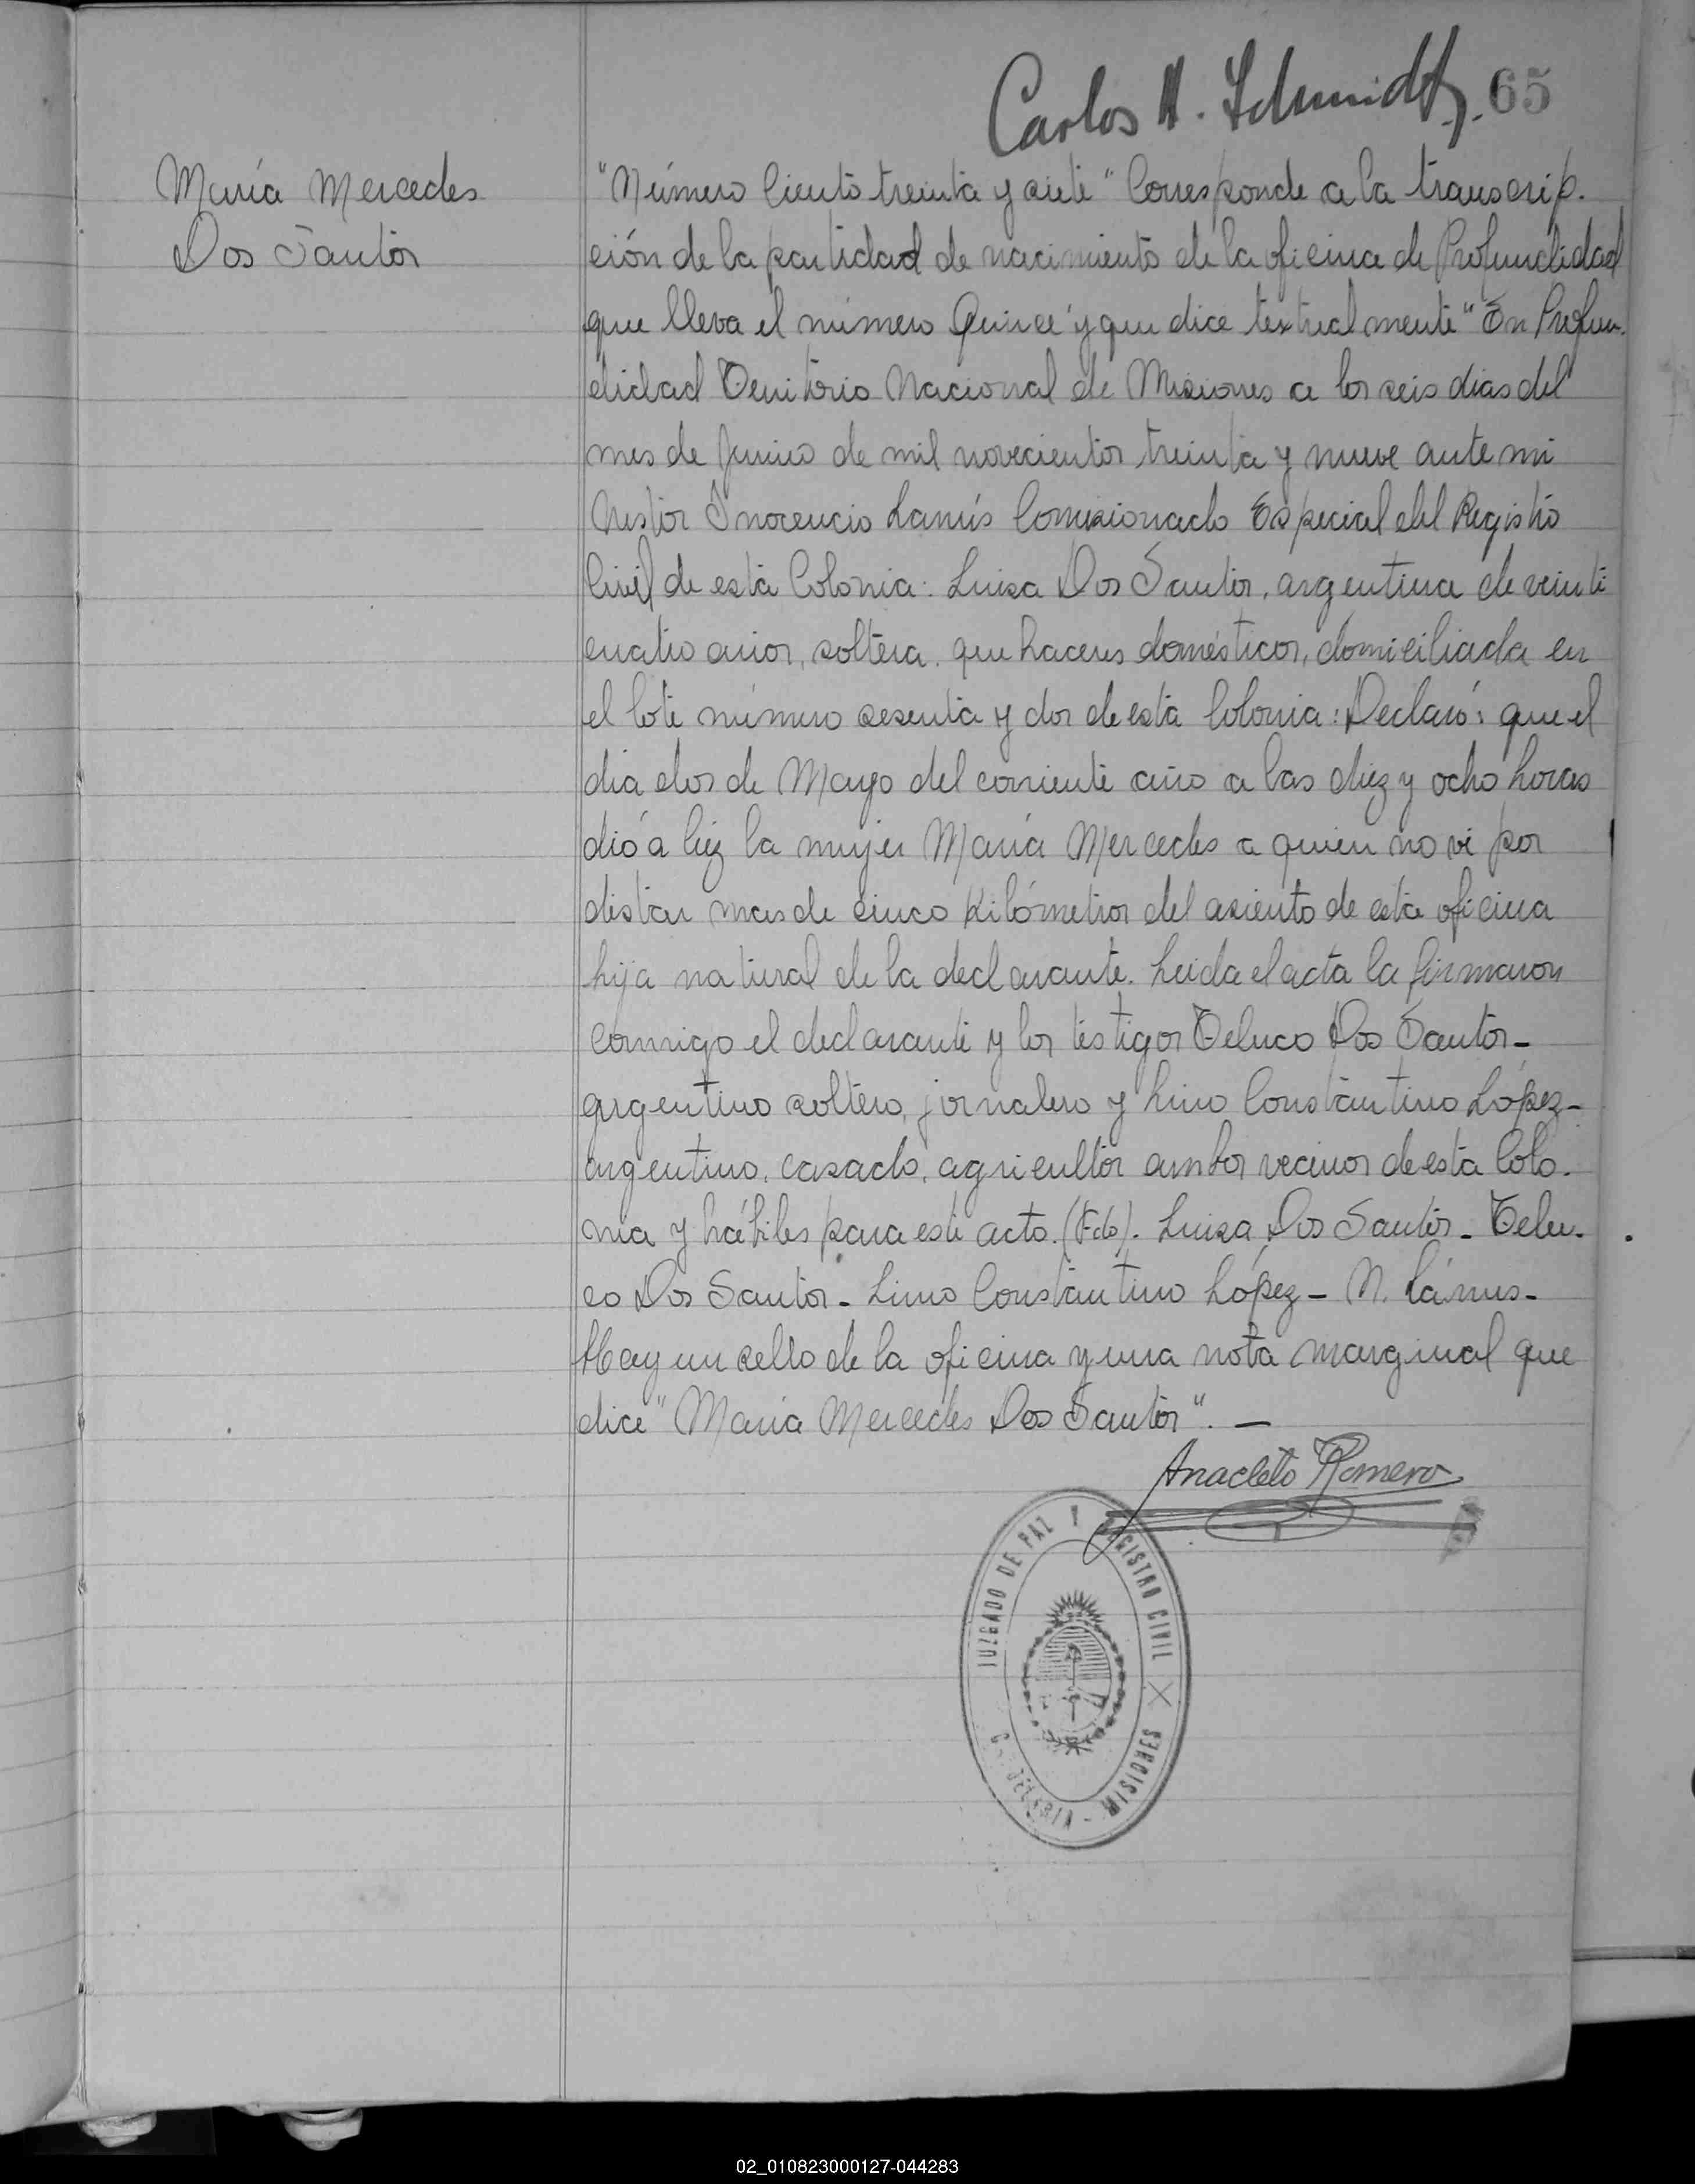 Carlos H. Schmidt, 65
María Mercedes
Dos Santos
"Número Ciento treinta y siete" Corresponde a la transcrip-
ción de la partidad de nacimiento de la oficina de Profundidad
que lleva el número Quince y que dice textualmente "En Profun-
didad Territorio Nacional de Misiones a los seis dias del
mes de Junio de mil novecientos treinta y nueve ante mi
Nestor Inocencio Lanús Comisionado Especial del Registro
Civil de esta Colonia: Luisa Dos Santos, argentina de veinti
cuatro años, soltera, que haceres domésticos, domiciliada en
el lote número sesenta y dos de esta Colonia: Declaró: que el
dia dos de Mayo del corriente año a las diez y ocho horas
dió a luz la mujer María Mercedes a quien no vi por
distar mas de cinco Kilómetros del asiento de esta oficina
hija natural de la declarante. Leida el acta la firmaron
conmigo el declarante y los testigos Teluco Dos Santos-
argentino soltero, jornalero y Lino Constantino López-
argentino, casado, agricultor ambos vecinos de esta Colo-
nia y hábiles para este acto. (Fdo). Luisa Dos Santos- Telu-
co Dos Santos- Lino Constantino López- N. Lánus-
Hay un sello de la oficina y una nota marginal que
dice "María Mercedes Dos Santos".-
Anacleto Romero
JUZGADO DE PAZ Y REGISTRO CIVIL
MISIONES
02_010823000127-044283